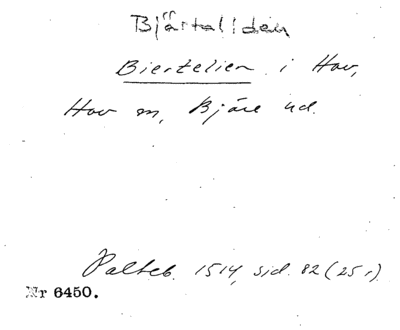 Bjärtaliden
Biertelien i Hov,
Hov sn, Bjäre hd.
Palteb. 1514, sid. 82 (25 r)
Nr 6450.